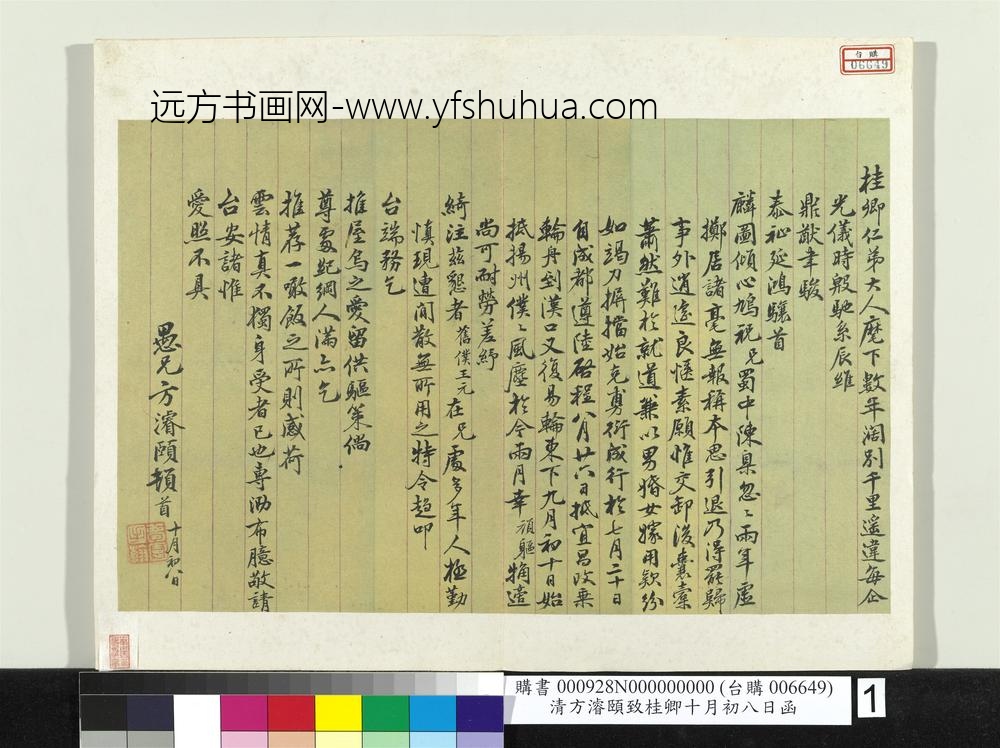 远方书画网-www.yfshuhua.com
台購
006649
桂卿仁弟大人麾下數年闊別千里遥違每企
光儀時殷馳系辰維
鼎猷聿駿
泰祉延鴻驤首
麟圖傾心鳩祝兄蜀中陳臬忽忽兩年虛
擲居諸毫無報稱本思引退乃得罷歸
事外逍遙良愜素願惟交卸後囊橐
蕭然難於就道兼以男婚女嫁用款紛
如竭力摒擋始克勇衍成行於七月二十日
自成都遵陸啓程八月廿六日抵宜昌改乘
輪舟到漢口又復易輪東下九月初十日始
抵揚州僕僕風塵於今兩月幸頑軀犕適
尚可耐勞差紓
綺注茲懇者舊僕王元在兄處多年人極勤
慎現遭閒散無所用之特令趨叩
台端務乞
推屋烏之愛留供驅策倘
尊處紀綱人滿亦乞
推荐一噉飯之所則感荷
雲情真不獨身受者已也專泐布臆敬請
台安諸惟
愛照不具
愚兄方濬頤頓首十月初八日
購書 000928N000000000 (台購 006649)
清方濬頤致桂卿十月初八日函
1